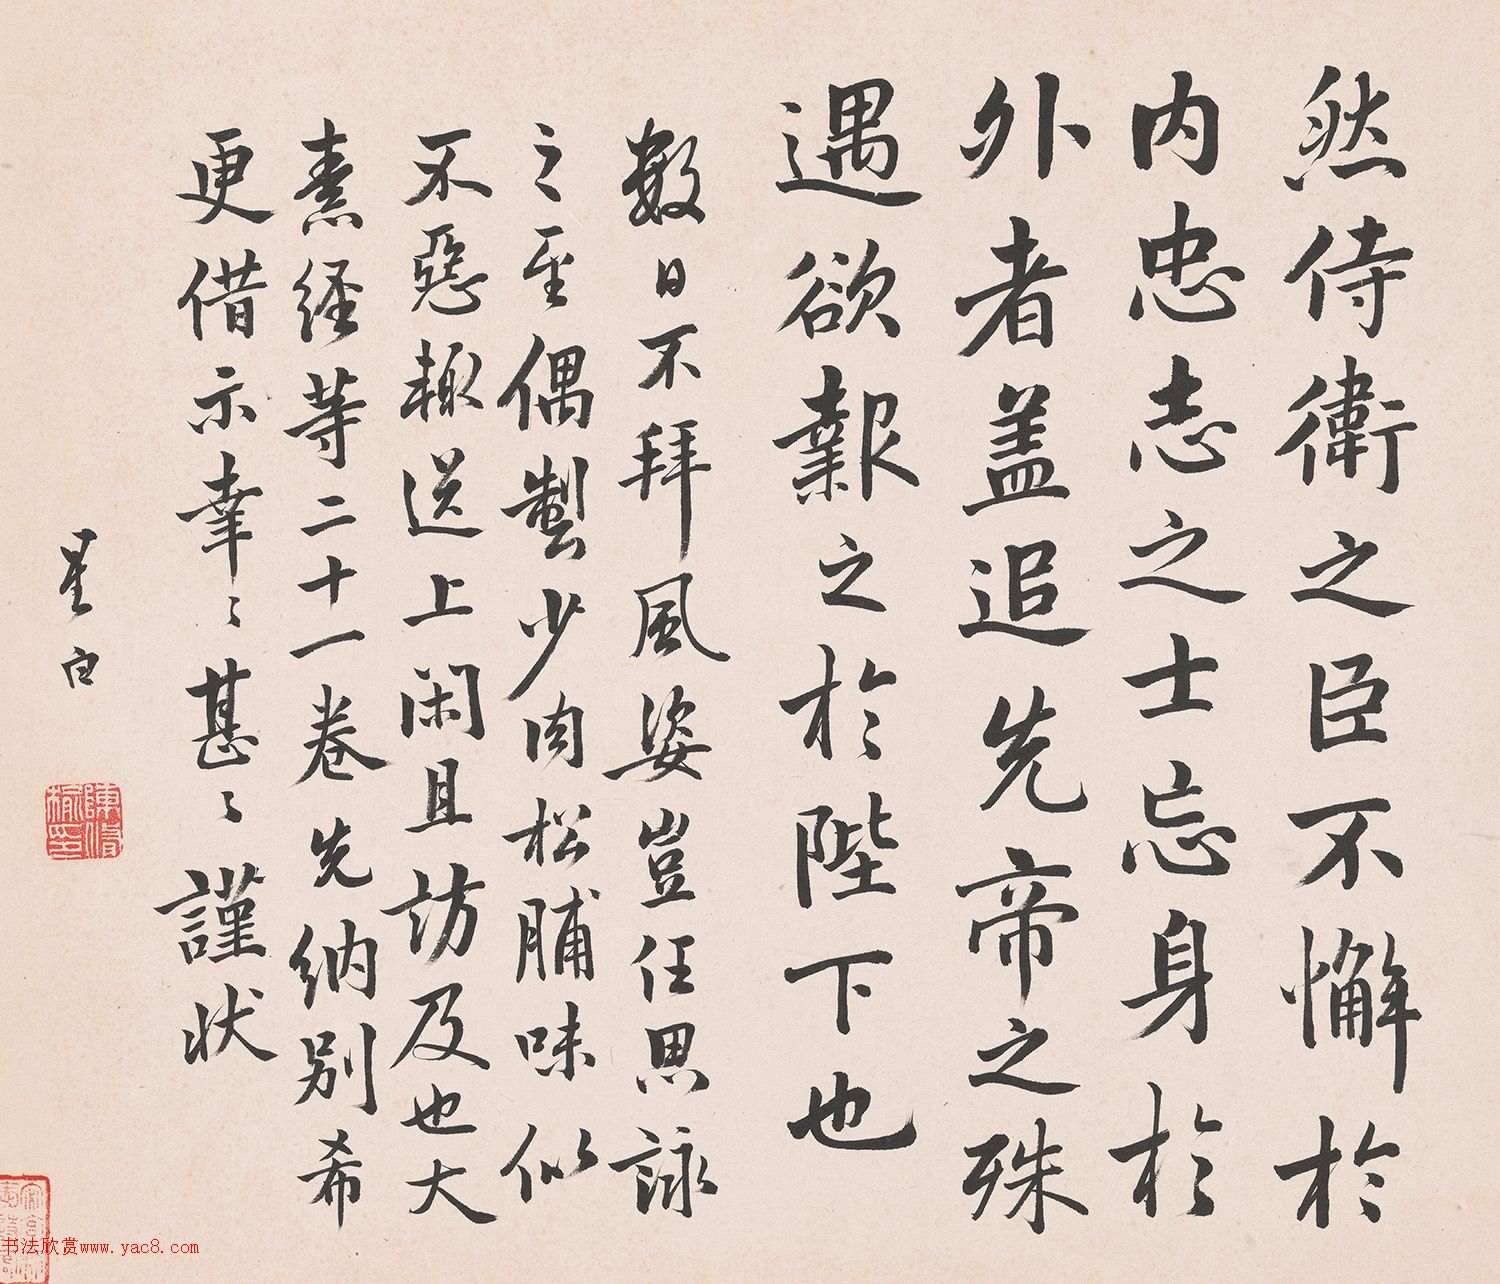 然侍衛之臣不懈於
内忠志之士忘身於
外者盖追先帝之殊
遇欲報之於陛下也
數日不拜風姿豈任思詠
之至偶製少肉松脯味似
不惡輙送上闲且訪及也大
素经等二十一卷先纳别希
更借示幸〻甚〻謹状
星白
陳脩榆印
书法欣赏www.yac8.com